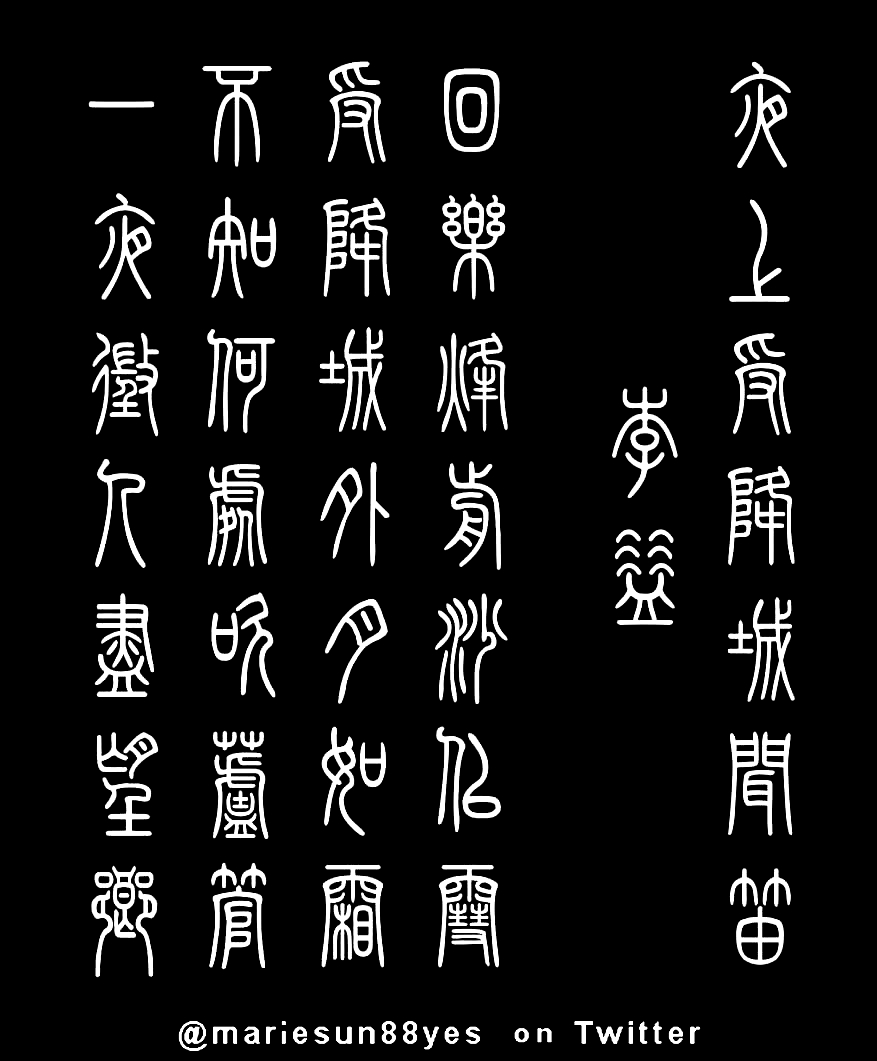 夜上受降城聞笛
李益
回樂烽前沙似雪
受降城外月如霜
不知何處吹蘆管
一夜徵人盡望鄉
@mariesun88yes on Twitter